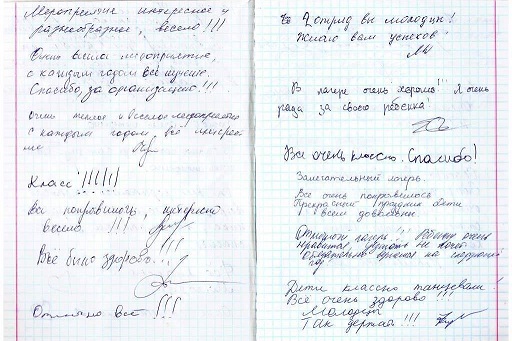 Мероприятие интересное и
разнообразное, весело!!!
Очень весело мероприятие,
с каждым годом всё лучше.
Спасибо, за организацию!!!
Очень теплое и веселое мероприятие
с каждым годом, всё интерес
нее
Класс!!!!!!
Все понравилось, интересно
весело. !!!
Всё было здорово...!!!
Отлично всё !!!
2 отряд вы молодцы!
Желаю вам успехов!
В лагере очень хорошо!! Я очень
рада за своего ребенка!
Все очень классно. Спасибо!
Замечательный лагерь.
Все очень понравилось
Прекрасный праздник дети
всем довольны.
Отличный лагерь!!! Ребенку очень
нравится, уходить не хочет.
Обязательно придем на следующий
год
Дети классно танцевали!
Всё очень здорово!!!
Молодцы
Так держать!!!